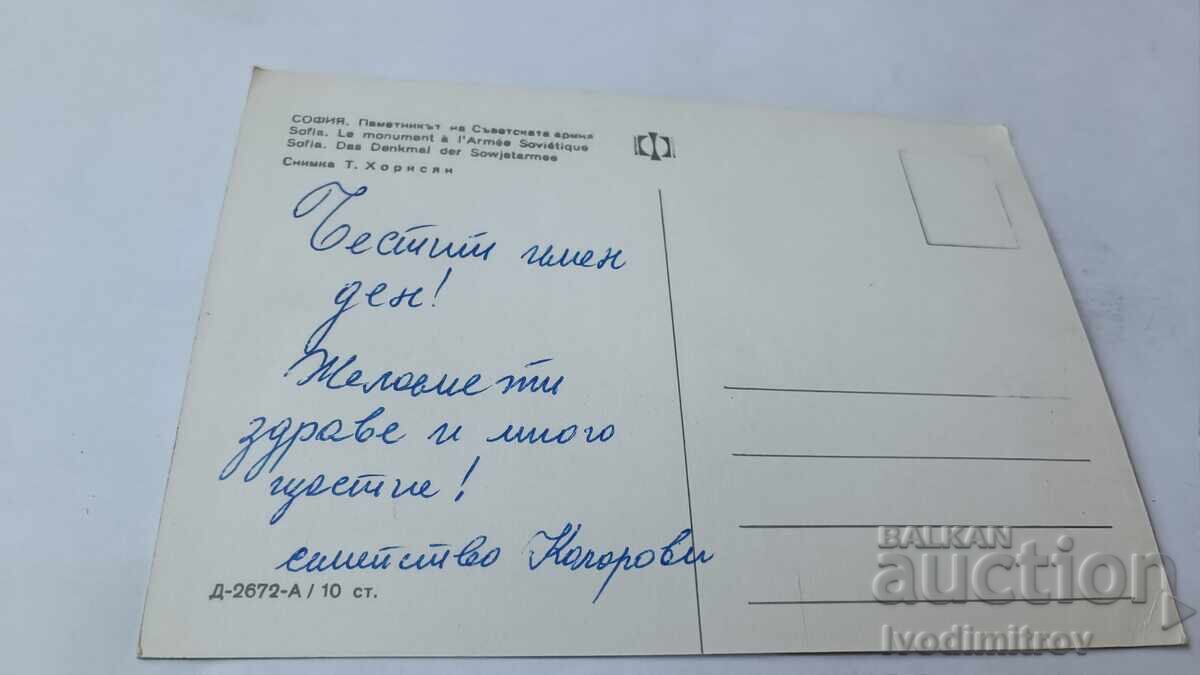 СОФИЯ. Паметникът на Съветската армия
Sofia. Le monument à l'Armée Soviétique
Sofia. Das Denkmal der Sowjetarmee
Снимка Т. Хорисян
Честит имен
ден!
Желаем ти
здраве и много
щастие!
семейство
Д-2672-А / 10 ст.
BALKAN
auction
Ivodimitrov